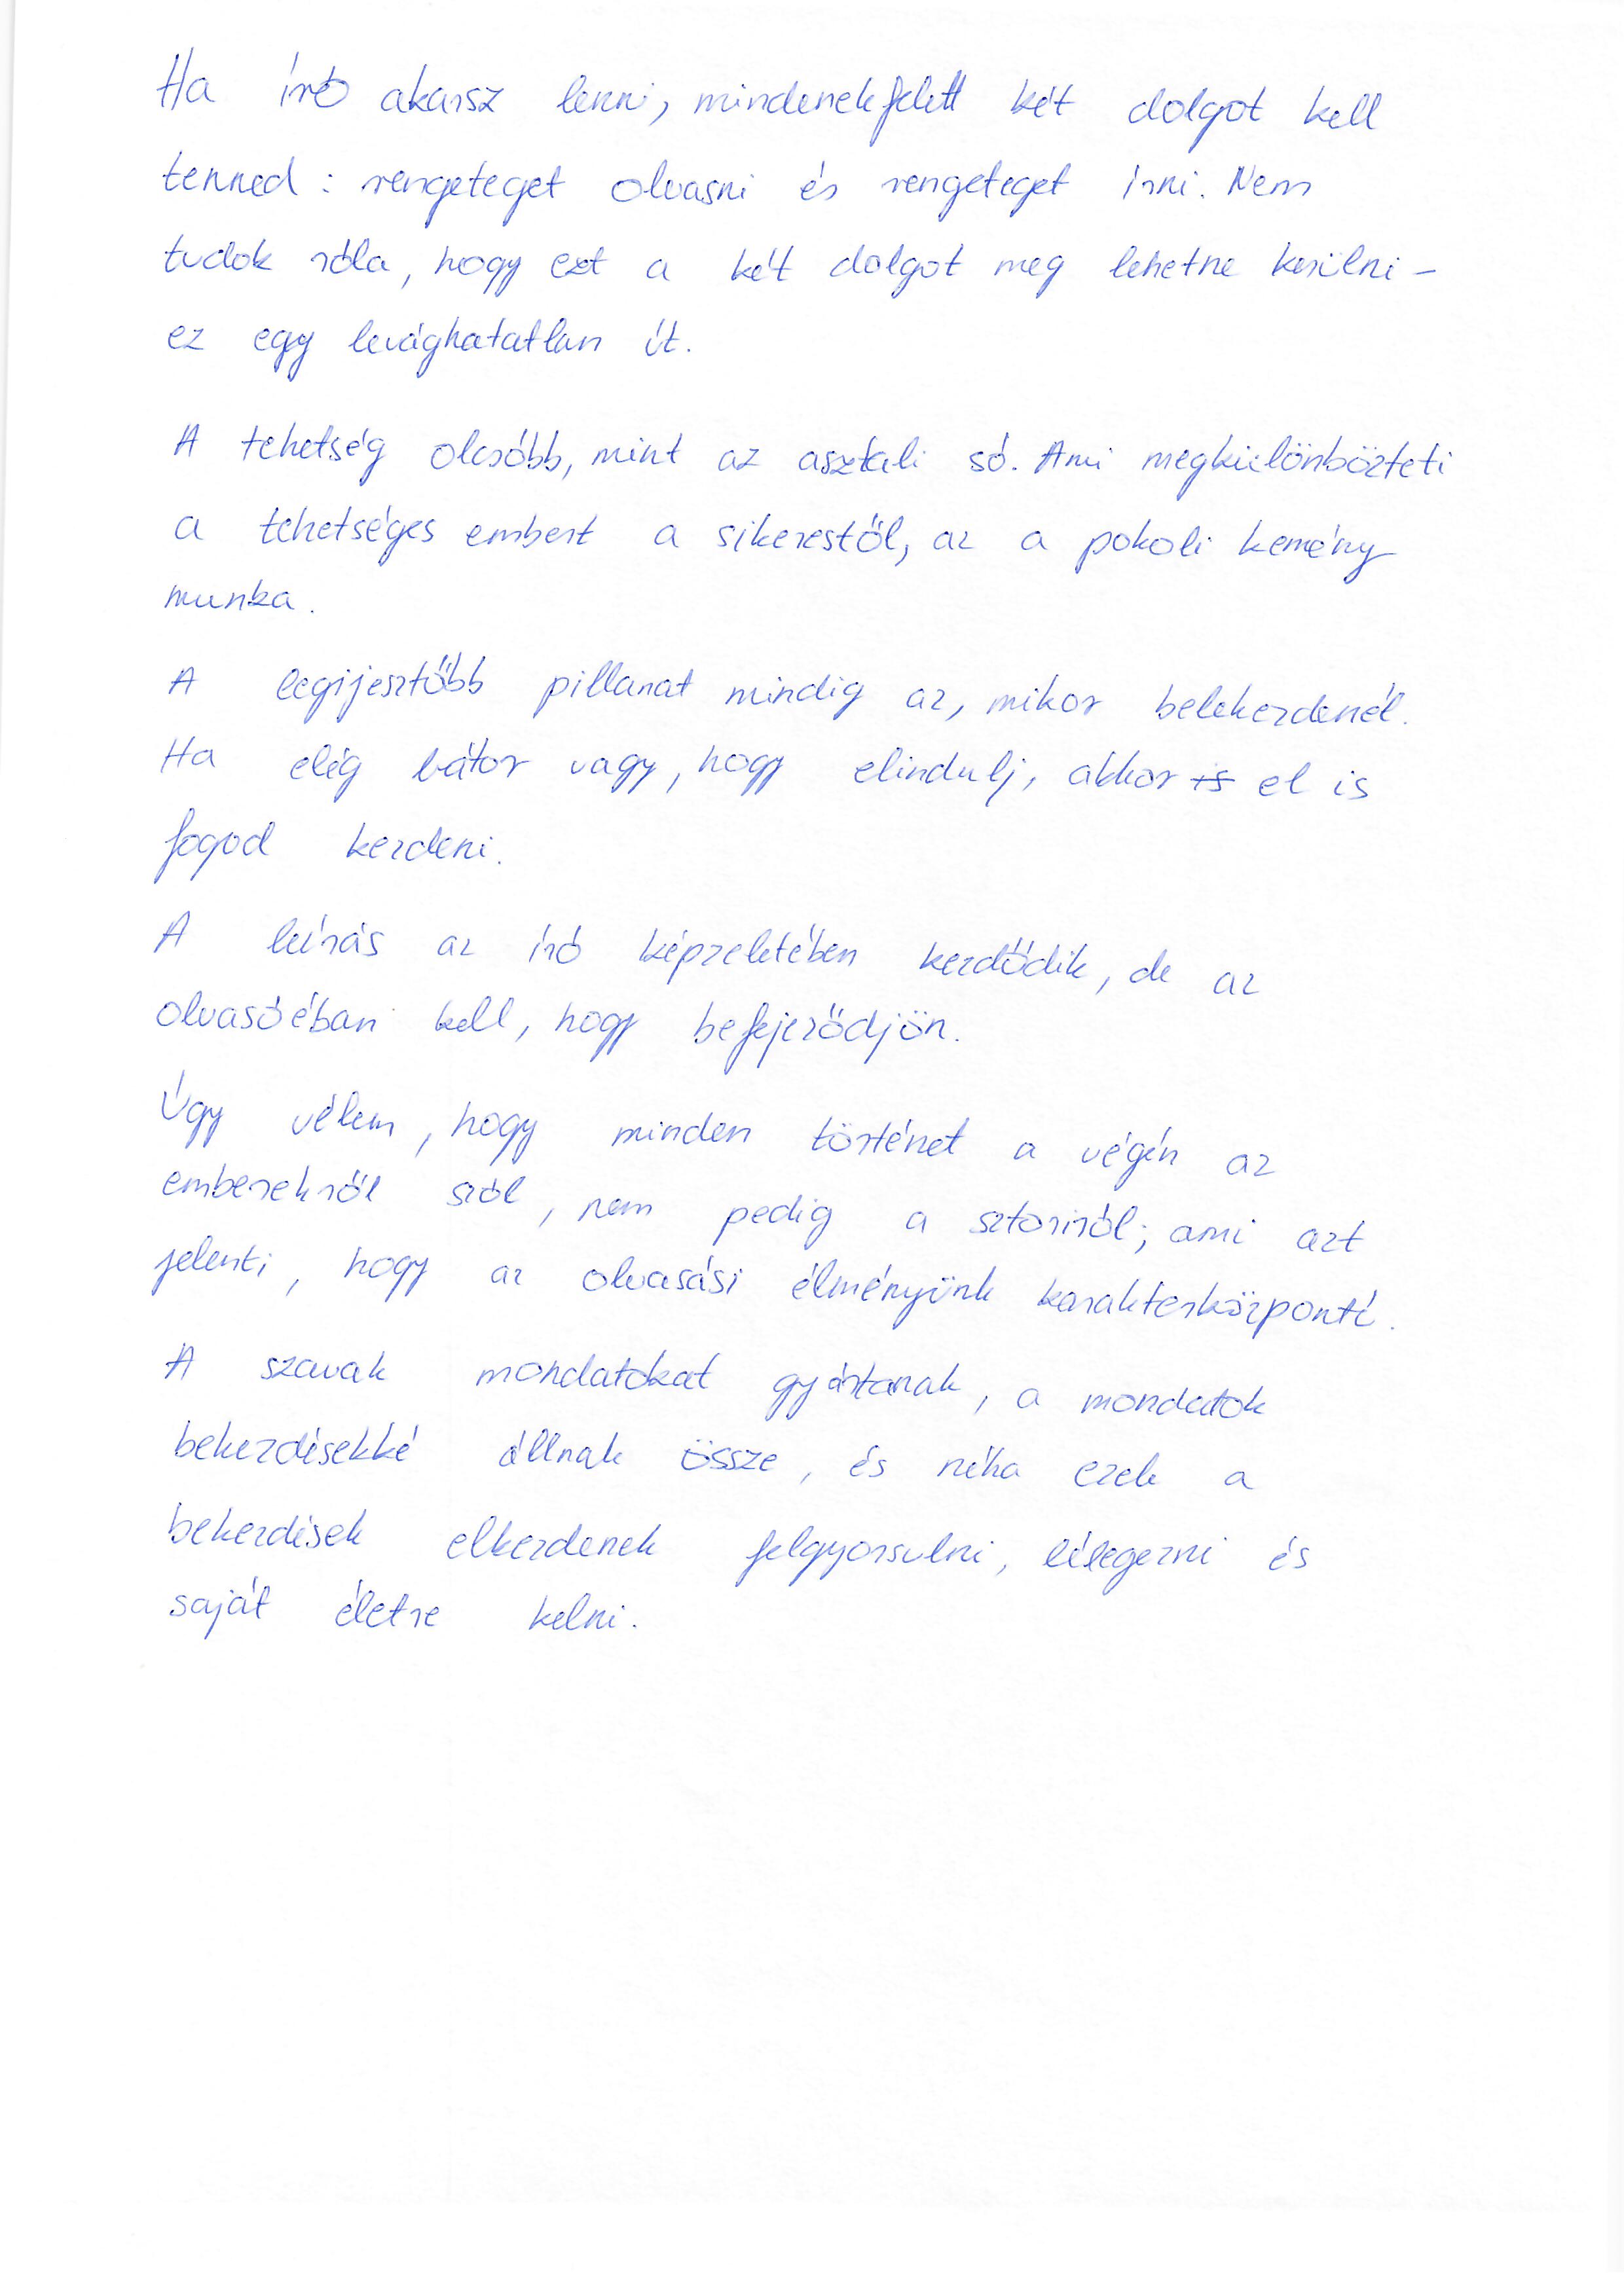 Ha író akarsz lenni, mindenekfelett két dolgot kell
tenned: rengeteget olvasni és rengeteget írni. Nem
tudok róla, hogy ezt a két dolgot meg lehetne kerülni –
ez egy levághatatlan út.
A tehetség olcsóbb, mint az asztali só. Ami megkülönbözteti
a tehetséges embert a sikerestől, az a pokoli kemény
munka.
A legijesztőbb pillanat mindig az, mikor belekezdenél.
Ha elég bátor vagy, hogy elindulj, akkor is el is
fogod kezdeni.
A leírás az író képzeletében kezdődik, de az
olvasóéban kell, hogy befejeződjön.
Úgy vélem, hogy minden történet a végén az
emberekről szól, nem pedig a sztoriról; ami azt
jelenti, hogy az olvasási élményünk karakterközpontú.
A szavak mondatokat gyártanak, a mondatok
bekezdésekké állnak össze, és néha ezek a
bekezdések elkezdenek felgyorsulni, lélegezni és
saját életre kelni.